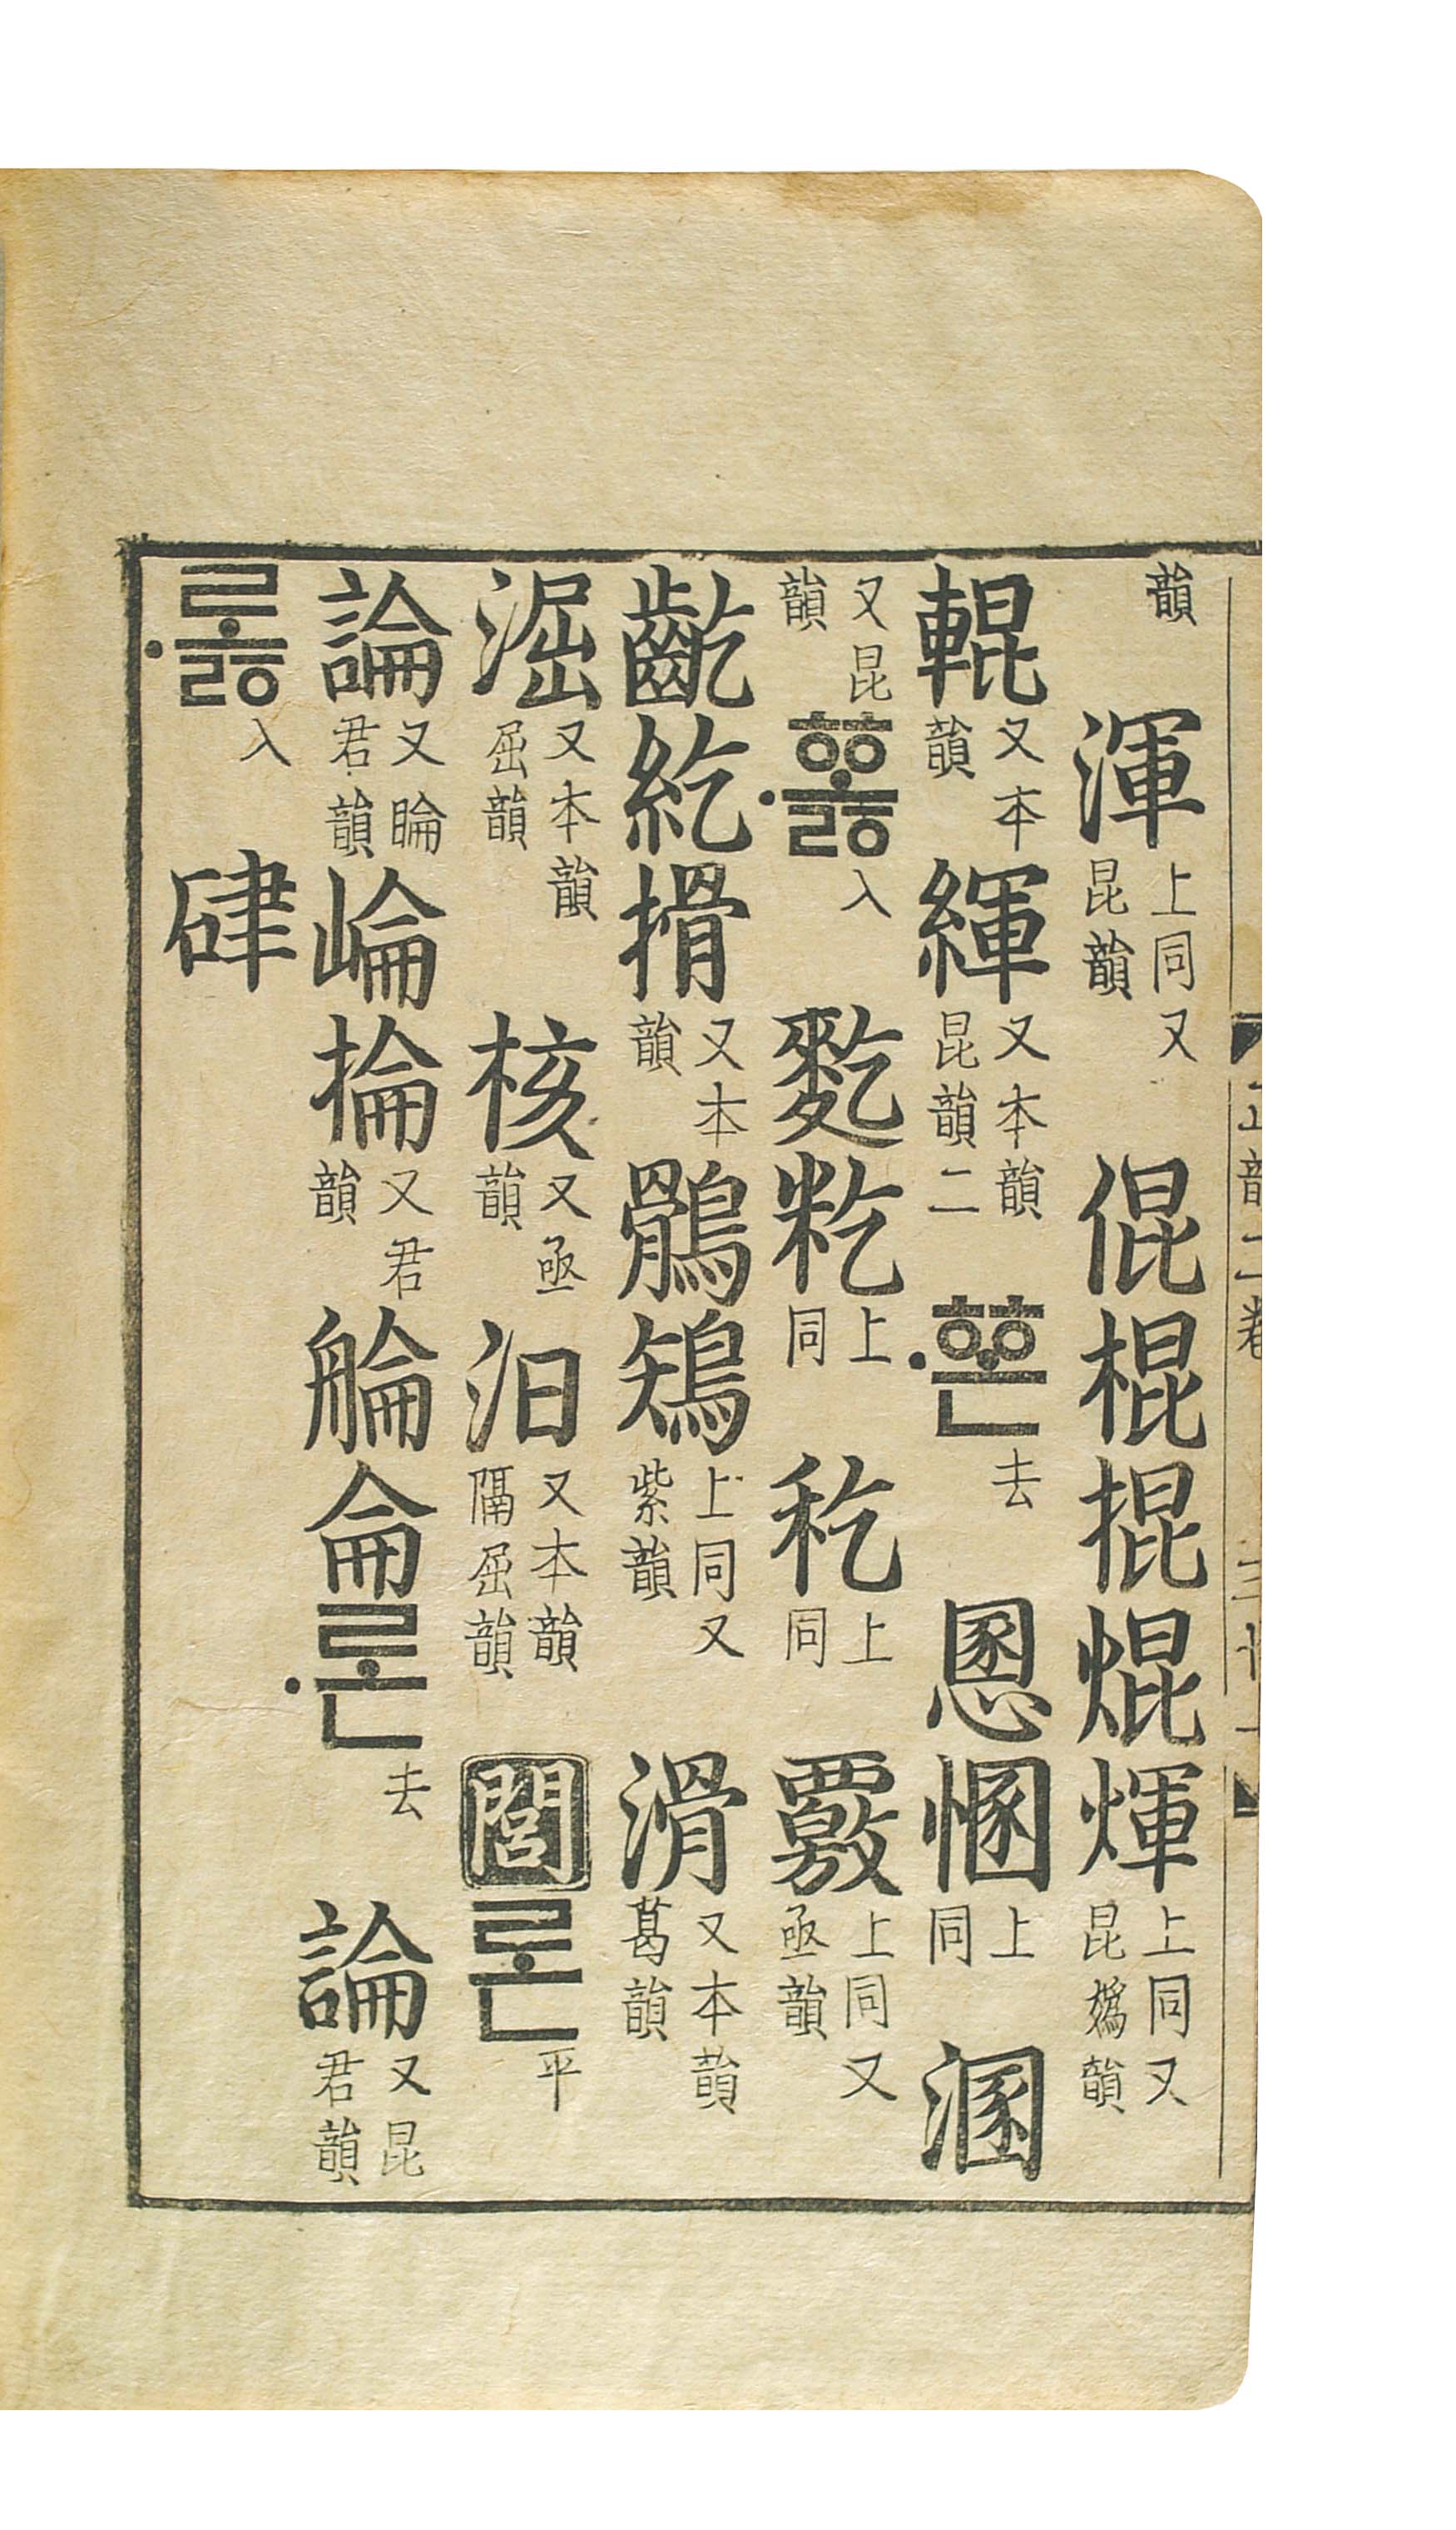 韻渾上同又昆韻倱棍掍焜煇上同又昆嬀韻
輥又本韻緷又本韻昆韻二ᅘᅩᆫ〮去慁㥵上同溷
又昆韻ᅘᅩᇙ〮入麧籺上同上同覈上同又亟韻
齕紇搰又本韻鶻鴙上同又紫韻滑又本韻葛韻
淈又本韻屈韻核又亟韻汩又本韻隔屈韻閭론平
論又睔君韻崘掄又君韻侖론〮去論又昆君韻
로ᇙ〮入硉